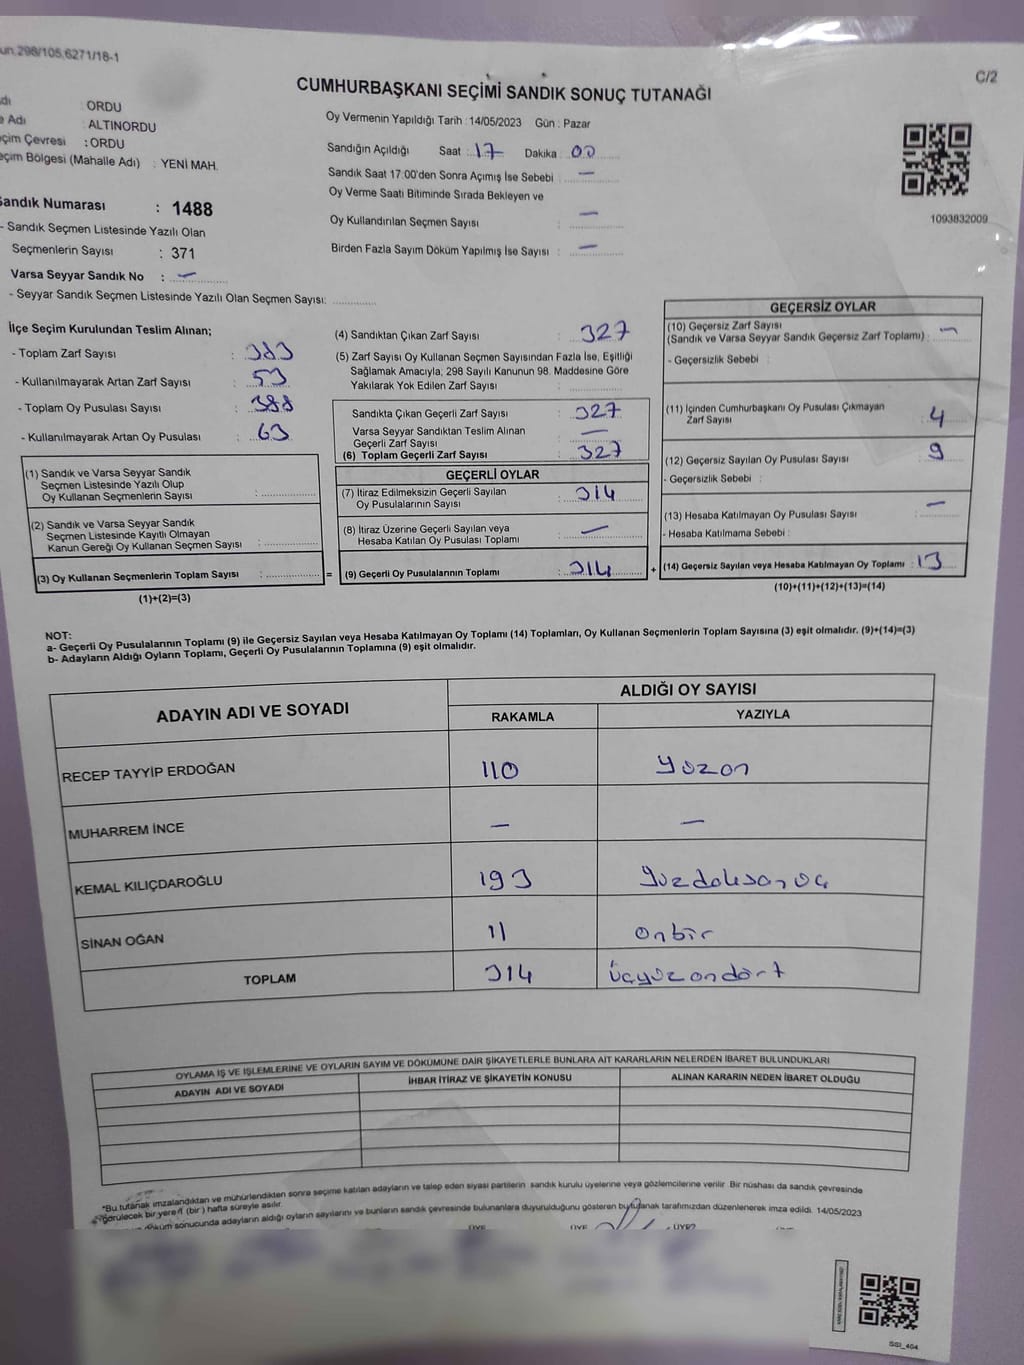 un.298/105,6271/18-1
C/2
CUMHURBAŞKANI SEÇİMİ SANDIK SONUÇ TUTANAĞI
: ORDU
Adı : ALTINORDU
Çevresi : ORDU
Bölgesi (Mahalle Adı) : YENİ MAH.
Sandık Numarası : 1488
- Sandık Seçmen Listesinde Yazılı Olan
Seçmenlerin Sayısı : 371
Varsa Seyyar Sandık No : —
- Seyyar Sandık Seçmen Listesinde Yazılı Olan Seçmen Sayısı:
Oy Vermenin Yapıldığı Tarih : 14/05/2023 Gün : Pazar
Sandığın Açıldığı Saat : 17 Dakika : 00
Sandık Saat 17:00'den Sonra Açımış İse Sebebi : —
Oy Verme Saati Bitiminde Sırada Bekleyen ve
Oy Kullandırılan Seçmen Sayısı : —
Birden Fazla Sayım Döküm Yapılmış İse Sayısı : —
1093832009
İlçe Seçim Kurulundan Teslim Alınan;
- Toplam Zarf Sayısı : 383
- Kullanılmayarak Artan Zarf Sayısı : 53
- Toplam Oy Pusulası Sayısı : 388
- Kullanılmayarak Artan Oy Pusulası : 63
(1) Sandık ve Varsa Seyyar Sandık
Seçmen Listesinde Yazılı Olup
Oy Kullanan Seçmenlerin Sayısı :
(2) Sandık ve Varsa Seyyar Sandık
Seçmen Listesinde Kayıtlı Olmayan
Kanun Gereği Oy Kullanan Seçmen Sayısı :
(3) Oy Kullanan Seçmenlerin Toplam Sayısı : =
(1)+(2)=(3)
(4) Sandıktan Çıkan Zarf Sayısı : 327
(5) Zarf Sayısı Oy Kullanan Seçmen Sayısından Fazla İse, Eşitliği
Sağlamak Amacıyla; 298 Sayılı Kanunun 98. Maddesine Göre
Yakılarak Yok Edilen Zarf Sayısı :
Sandıkta Çıkan Geçerli Zarf Sayısı : 327
Varsa Seyyar Sandıktan Teslim Alınan
Geçerli Zarf Sayısı : —
(6) Toplam Geçerli Zarf Sayısı : 327
GEÇERLİ OYLAR
(7) İtiraz Edilmeksizin Geçerli Sayılan
Oy Pusulalarının Sayısı : 314
(8) İtiraz Üzerine Geçerli Sayılan veya
Hesaba Katılan Oy Pusulası Toplamı : —
(9) Geçerli Oy Pusulalarının Toplamı : 314 +
GEÇERSİZ OYLAR
(10) Geçersiz Zarf Sayısı
(Sandık ve Varsa Seyyar Sandık Geçersiz Zarf Toplamı) : —
- Geçersizlik Sebebi :
(11) İçinden Cumhurbaşkanı Oy Pusulası Çıkmayan
Zarf Sayısı : 4
(12) Geçersiz Sayılan Oy Pusulası Sayısı : 9
- Geçersizlik Sebebi :
(13) Hesaba Katılmayan Oy Pusulası Sayısı : —
- Hesaba Katılmama Sebebi :
(14) Geçersiz Sayılan veya Hesaba Katılmayan Oy Toplamı : 13
(10)+(11)+(12)+(13)=(14)
NOT:
a- Geçerli Oy Pusulalarının Toplamı (9) ile Geçersiz Sayılan veya Hesaba Katılmayan Oy Toplamı (14) Toplamları, Oy Kullanan Seçmenlerin Toplam Sayısına (3) eşit olmalıdır. (9)+(14)=(3)
b- Adayların Aldığı Oyların Toplamı, Geçerli Oy Pusulalarının Toplamına (9) eşit olmalıdır.
ADAYIN ADI VE SOYADI
ALDIĞI OY SAYISI
RAKAMLA YAZIYLA
RECEP TAYYİP ERDOĞAN 110 Yüzon
MUHARREM İNCE — —
KEMAL KILIÇDAROĞLU 193 Yüzdoksanüç
SİNAN OĞAN 11 Onbir
TOPLAM 314 Üçyüzondört
OYLAMA İŞ VE İŞLEMLERİNE VE OYLARIN SAYIM VE DÖKÜMÜNE DAİR ŞİKAYETLERLE BUNLARA AİT KARARLARIN NELERDEN İBARET BULUNDUKLARI
ADAYIN ADI VE SOYADI İHBAR İTİRAZ VE ŞİKAYETİN KONUSU ALINAN KARARIN NEDEN İBARET OLDUĞU
*Bu tutanak imzalandıktan ve mühürlendikten sonra seçime katılan adayların ve talep eden siyasi partilerin sandık kurulu üyelerine veya gözlemcilerine verilir. Bir nüshası da sandık çevresinde
görülecek bir yere (bir) hafta süreyle asılır.
döküm sonucunda adayların aldığı oyların sayılarını ve bunların sandık çevresinde bulunanlara duyurulduğunu gösteren bu tutanak tarafımızdan düzenlenerek imza edildi. 14/05/2023
ÜYE ÜYE ÜYE
SSI_404